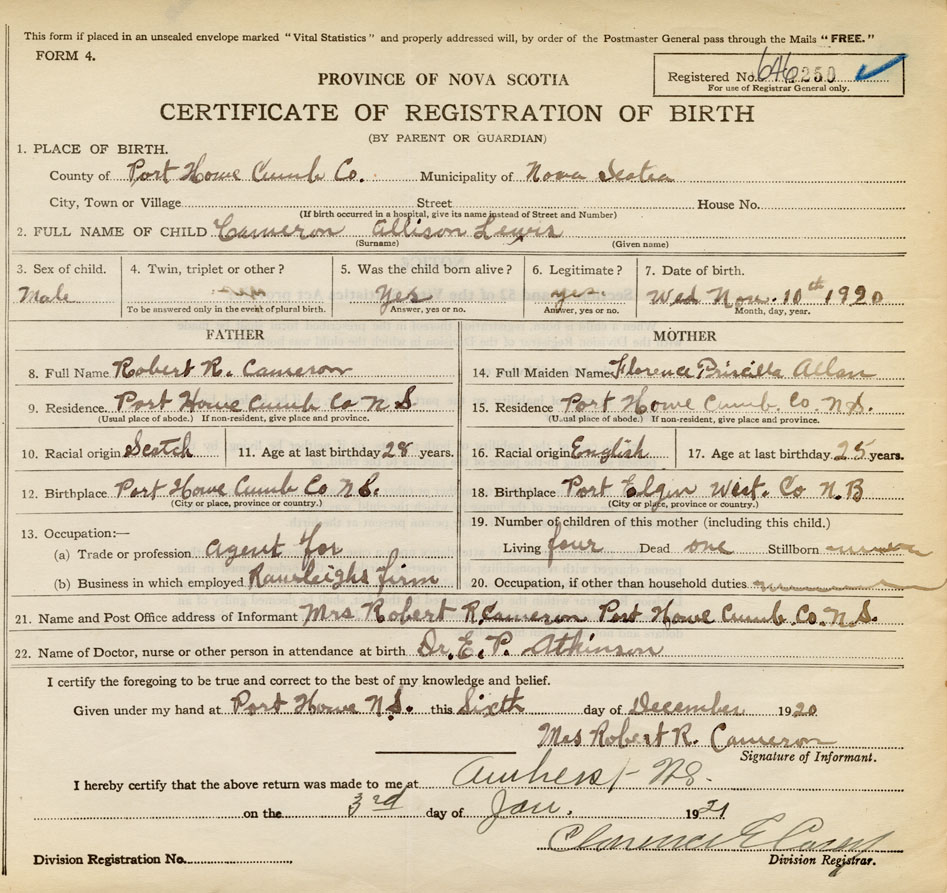 This form if placed in an unsealed envelope marked "Vital Statistics" and properly addressed will, by order of the Postmaster General pass through the Mails "FREE."
FORM 4.
Registered No. 646250
For use of Registrar General only.
PROVINCE OF NOVA SCOTIA
CERTIFICATE OF REGISTRATION OF BIRTH
(BY PARENT OR GUARDIAN)
1. PLACE OF BIRTH.
County of Port Howe Cumb Co. Municipality of Nova Scotia
City, Town or Village Street House No.
(If birth occurred in a hospital, give its name instead of Street and Number)
2. FULL NAME OF CHILD Cameron Allison Lewis
(Surname) (Given name)
3. Sex of child. 4. Twin, triplet or other? 5. Was the child born alive? 6. Legitimate? 7. Date of birth.
Male Yes yes. Wed Nov. 10th 1920
To be answered only in the event of plural birth. Answer, yes or no. Answer, yes or no. Month, day, year.
FATHER MOTHER
8. Full Name Robert R. Cameron 14. Full Maiden Name Florence Priscilla Allan
9. Residence Port Howe Cumb Co N S 15. Residence Port Howe Cumb. Co. N.S.
(Usual place of abode.) If non-resident, give place and province. (Usual place of abode.) If non-resident, give place and province.
10. Racial origin Scotch 11. Age at last birthday 28 years. 16. Racial origin English 17. Age at last birthday 25 years.
12. Birthplace Port Howe Cumb Co N S. 18. Birthplace Port Elgin West. Co N.B
(City or place, province or country.) (City or place, province or country.)
13. Occupation:—
(a) Trade or profession agent for
(b) Business in which employed Rawleighs firm
19. Number of children of this mother (including this child.)
Living four Dead one Stillborn
20. Occupation, if other than household duties
21. Name and Post Office address of Informant Mrs Robert R. Cameron Port Howe Cumb. Co. N.S.
22. Name of Doctor, nurse or other person in attendance at birth Dr. E. P. Atkinson
I certify the foregoing to be true and correct to the best of my knowledge and belief.
Given under my hand at Port Howe N.S. this Sixth day of December 1920
Mrs Robert R. Cameron
Signature of Informant.
I hereby certify that the above return was made to me at Amherst N.S.
on the 3rd day of Jan. 1921
Clarence E
Division Registration No. Division Registrar.